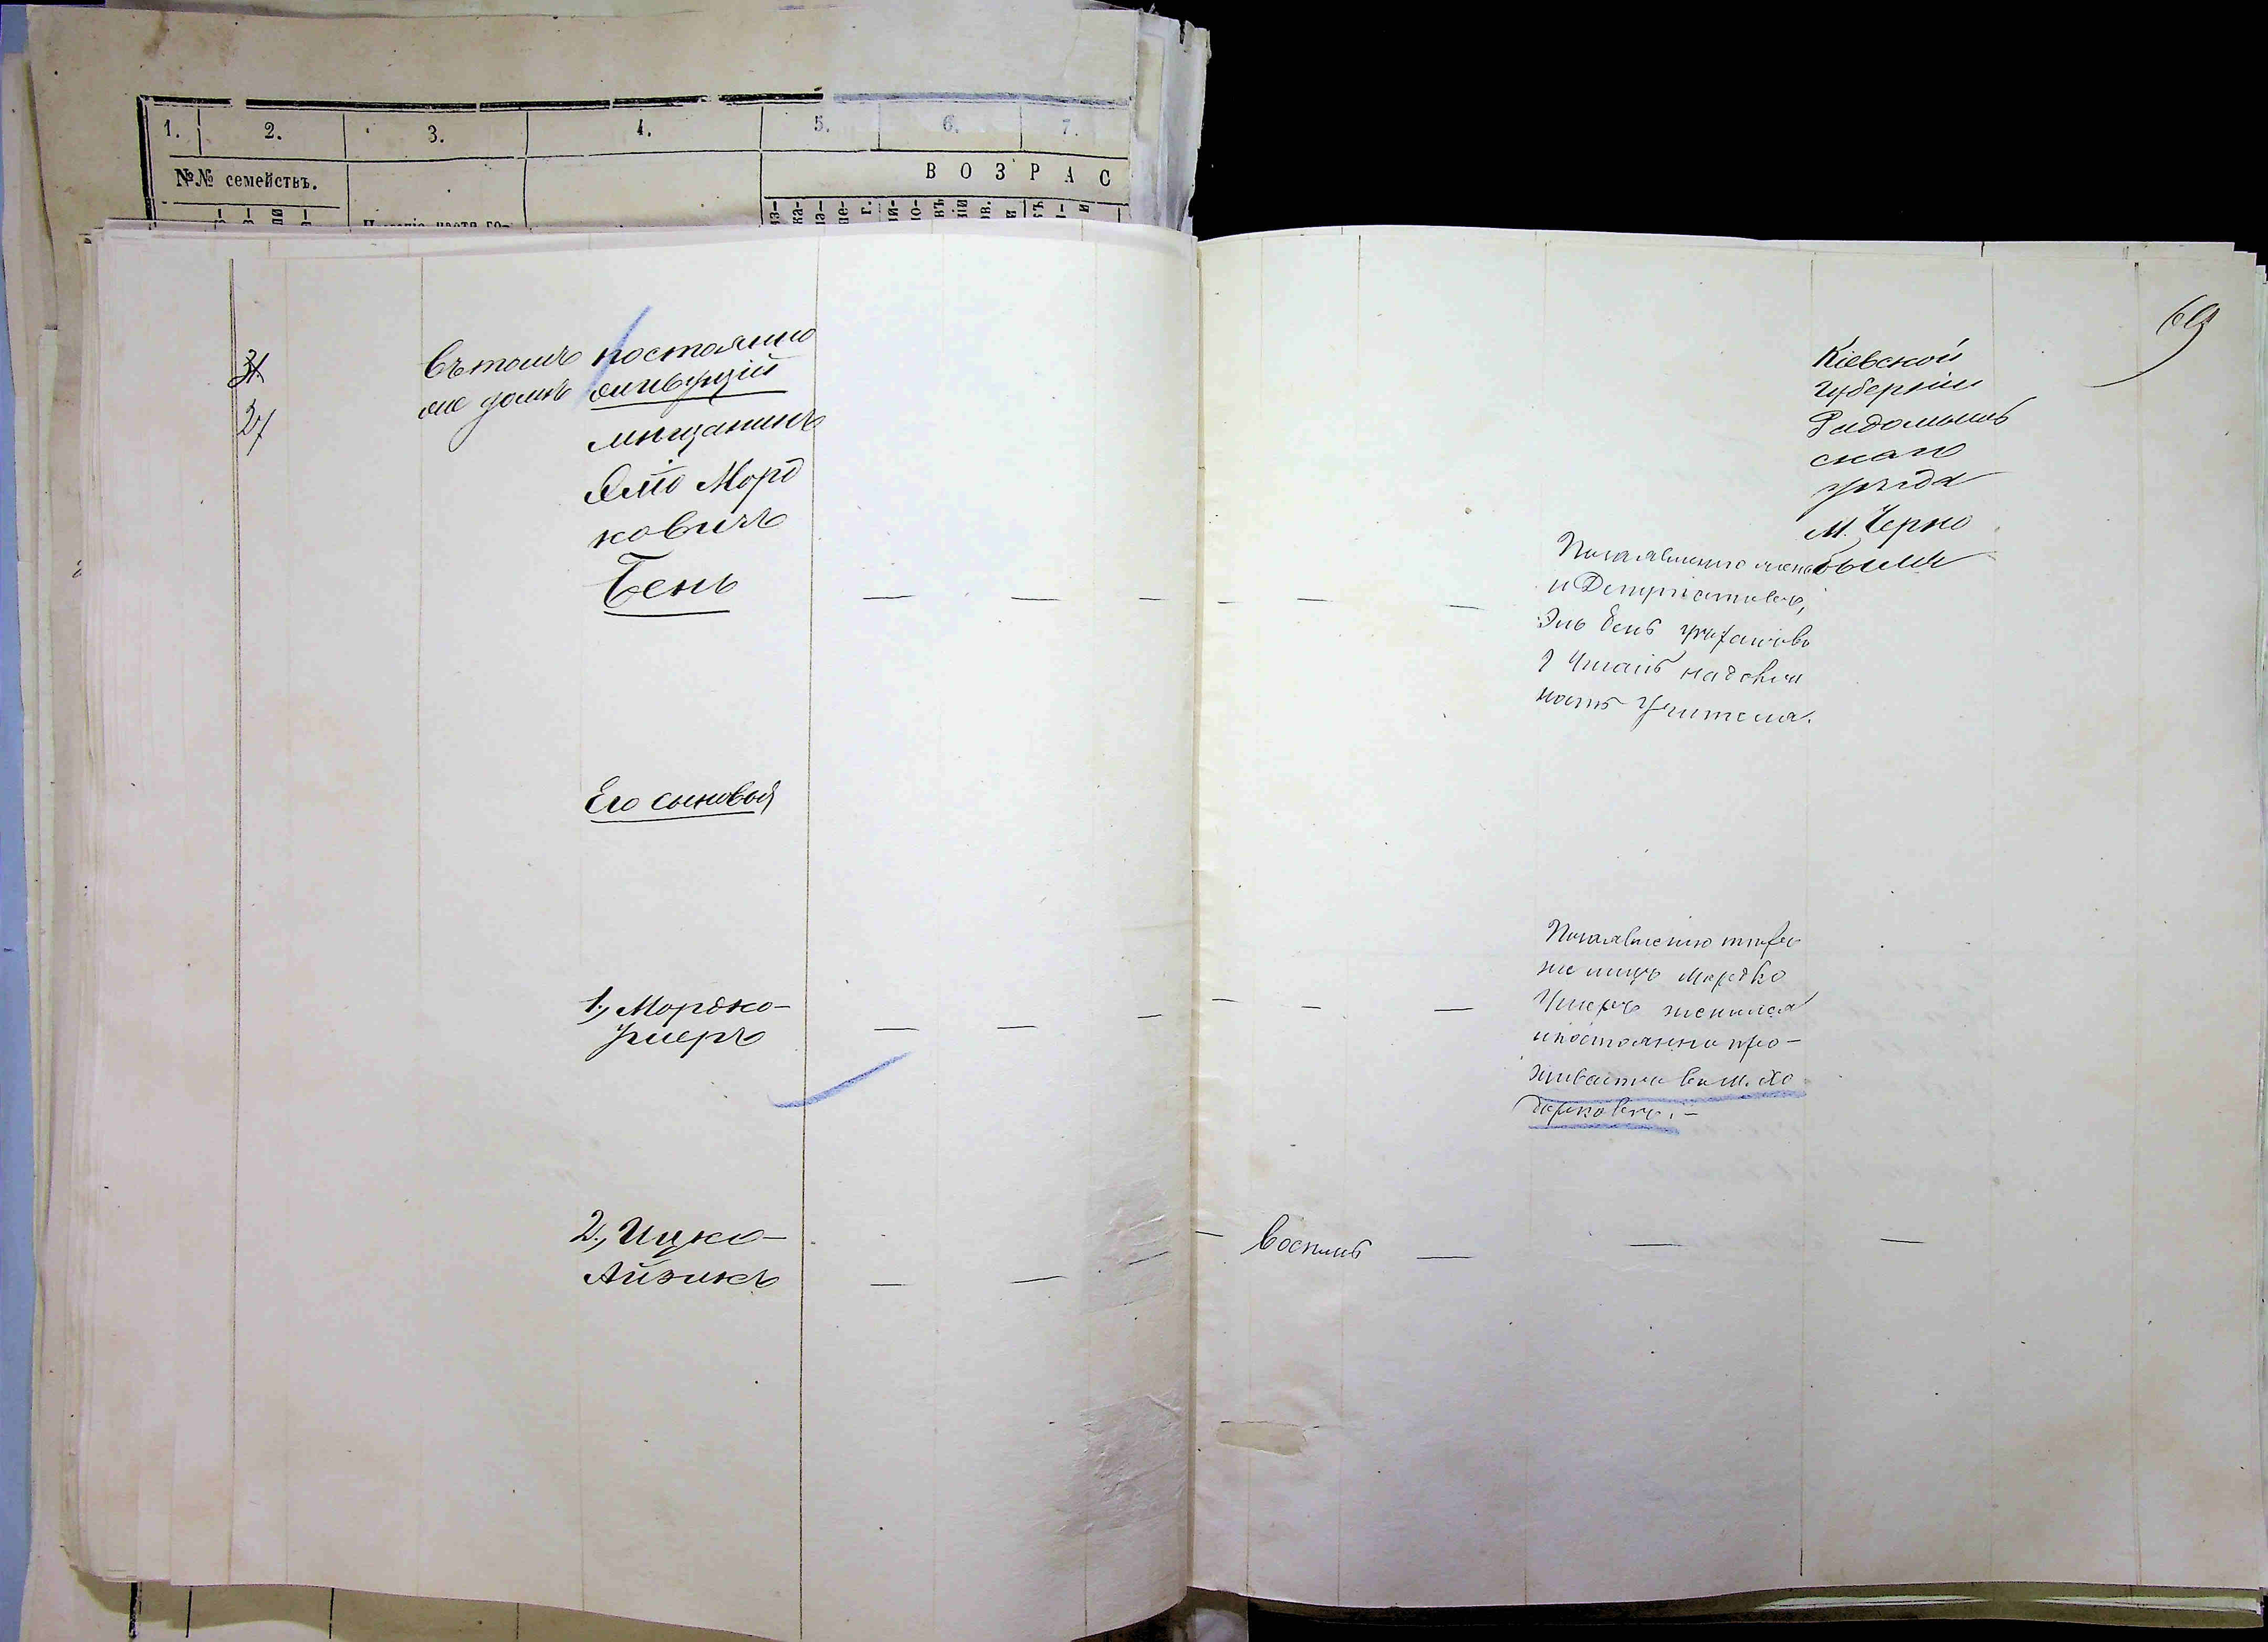 1. 2. 3. 4. 5. 6. 7.
№№ семействъ.
ВОЗРАС
69
31
27
Въ томъ
же домѣ
постоянно
живущій
мѣщанинъ
Элiо Морд
ковичъ
Бень
Кіевской
губерніи
Радомысль
скаго
уѣзда
М. Черно
быля
По заявленію
Эль Бень
учителя.
Его сыновья
1., Мордко-
Ушеръ
По заявленію тѣхъ
же лицъ Мордко
Ушеръ женился
и постоянно про-
живаетъ въ м. Хо
дорковѣ. –
2., Ицко-
Айзикъ
восемь